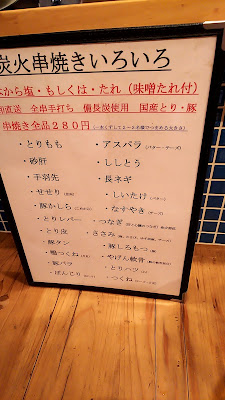 炭火串焼きいろいろ
から塩・もしくは・たれ（味噌たれ付）
直送 全串手打ち 備長炭使用 国産とり・豚
串焼き全品２８０円
・とりもも
・アスパラ（バター・チーズ）
・砂肝
・ししとう
・手羽先
・長ネギ
・せせり
・しいたけ
・豚かしら
・なすやき
・とりレバー
・つなぎ
・とり皮
・ささみ
・豚タン
・豚しろもつ
・鶏つくね
・やげん軟骨
・豚バラ
・とりハツ
・ぼんじり
・つくね